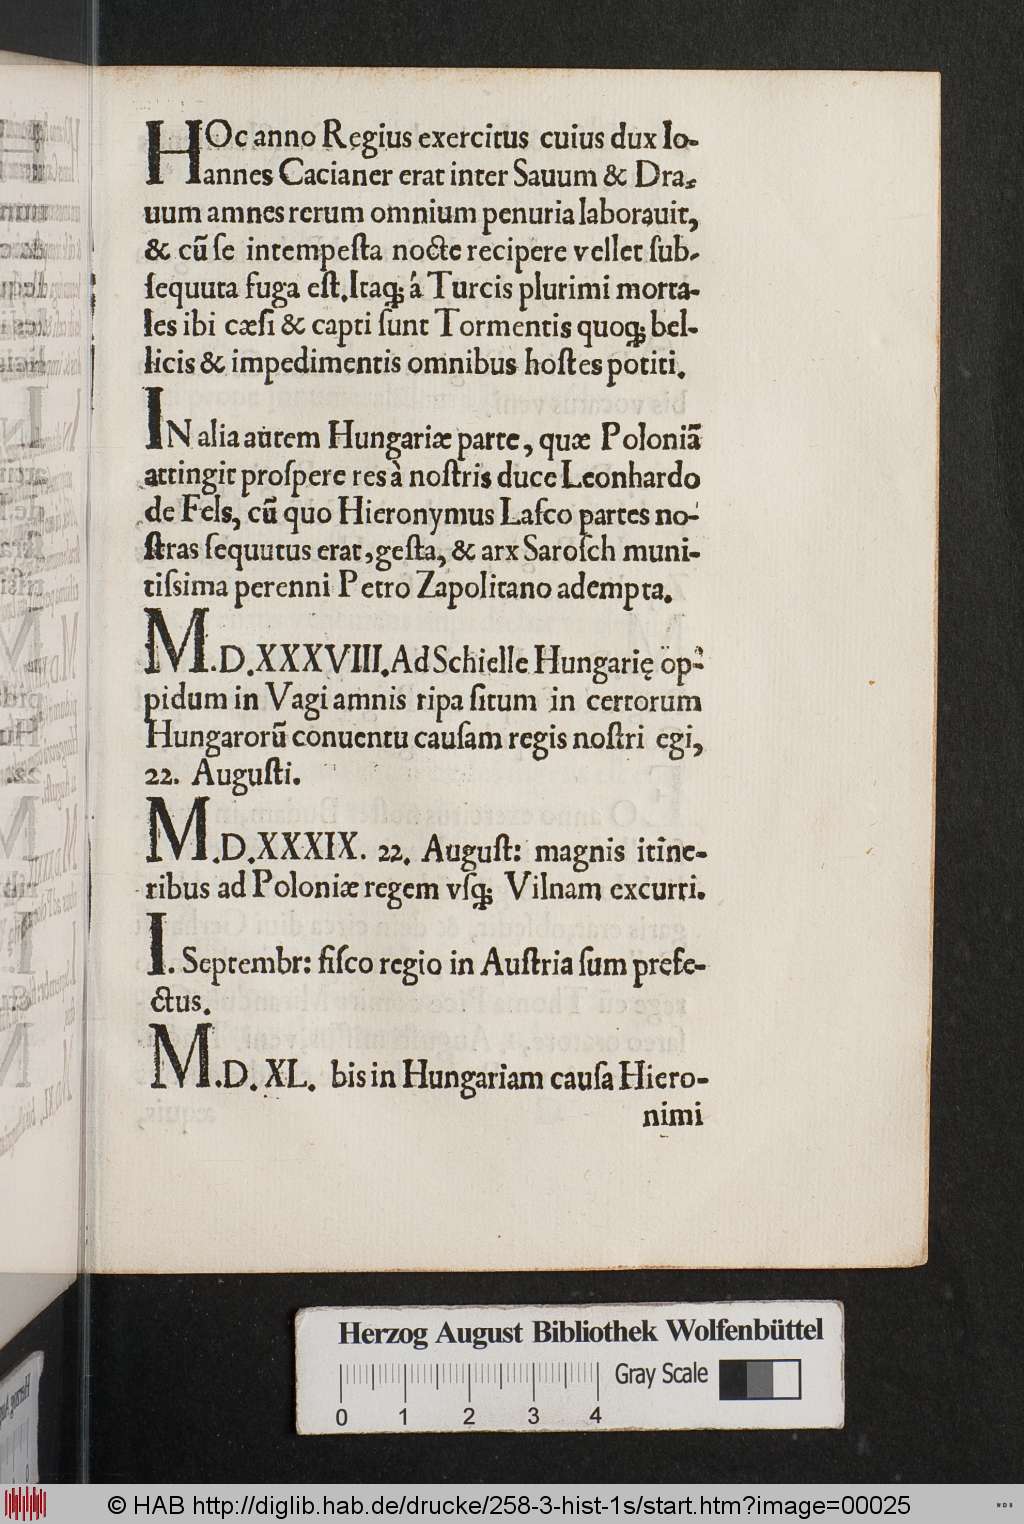 HOc anno Regius exercitus cuius dux Io-
annes Cacianer erat inter Sauum & Dra-
uum amnes rerum omnium penuria laborauit,
& cũ se intempeſta nocte recipere vellet ſub-
ſequuta fuga eſt. Itaq; á Turcis plurimi morta-
les ibi cæſi & capti ſunt Tormentis quoq; bel-
licis & impedimentis omnibus hoſtes potiti.
IN alia autem Hungariæ parte, quæ Poloniã
attingit proſpere res à noſtris duce Leonhardo
de Fels, cũ quo Hieronymus Laſco partes no-
ſtras ſequutus erat, geſta, & arx Saroſch muni-
tiſsima perenni Petro Zapolitano adempta.
M.D.XXXVIII. Ad Schielle Hungarię op-
pidum in Vagi amnis ripa ſitum in certorum
Hungarorũ conuentu cauſam regis noſtri egi,
22. Auguſti.
M.D.XXXIX. 22. Auguſt: magnis itine-
ribus ad Poloniæ regem vſq; Vilnam excurri.
I. Septembr: fiſco regio in Auſtria ſum prefe-
ctus.
M.D.XL. bis in Hungariam cauſa Hiero-
nimi
Herzog August Bibliothek Wolfenbüttel
Gray Scale
0 1 2 3 4
© HAB http://diglib.hab.de/drucke/258-3-hist-1s/start.htm?image=00025